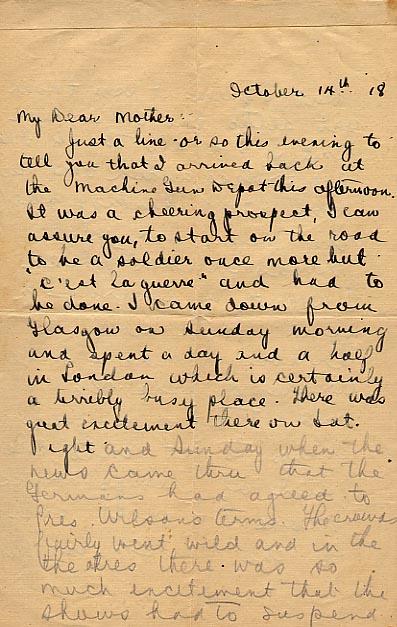 October 14th 18
My Dear Mother:
Just a line or so this evening to
tell you that I arrived back at
the Machine Gun Depot this afternoon.
It was a cheering prospect, I can
assure you, to start on the road
to be a soldier once more but
"c'est la guerre" and had to
be done. I came down from
Glasgow on Sunday morning
and spent a day and a half
in London which is certainly
a terribly busy place. There was
great excitement there on Sat.
ight and Sunday when the
news came thru that the
Germans had agreed to
Pres. Wilson's terms. The crowds
fairly went wild and in the
theatres there was so
much excitement that the
shows had to suspend